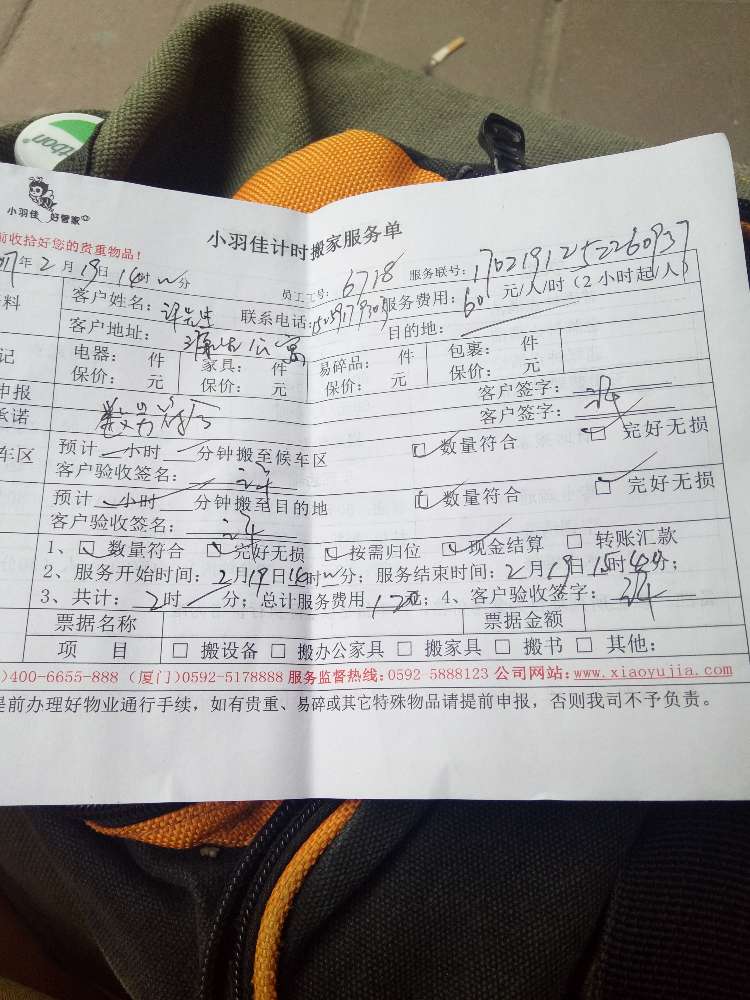 bon
小羽佳 好管家
前收拾好您的贵重物品！
小羽佳计时搬家服务单
年2月19日14时 分 员工工号：6718 服务联号：1702191252260937
料 客户姓名：许先生 联系电话： 服务费用：60 元/人/时（2小时起/人）
客户地址： 公寓 目的地：
记 电器： 件 家具： 件 易碎品： 件 包裹： 件
保价： 元 保价： 元 保价： 元 保价： 元
申报 客户签字：
承诺 客户签字：
车区 预计 小时 分钟搬至候车区 数量符合 完好无损
客户验收签名：
预计 小时 分钟搬至目的地 数量符合 完好无损
客户验收签名：
1、 数量符合 完好无损 按需归位 现金结算 转账汇款
2、服务开始时间：2月19日14时 分；服务结束时间：2月19日 时 分；
3、共计：2时 分；总计服务费用 元；4、客户验收签字：
票据名称 票据金额
项 目 搬设备 搬办公家具 搬家具 搬书 其他：
)400-6655-888 (厦门)0592-5178888 服务监督热线：0592-5888123 公司网站：www.xiaoyujia.com
提前办理好物业通行手续，如有贵重、易碎或其它特殊物品请提前申报，否则我司不予负责。